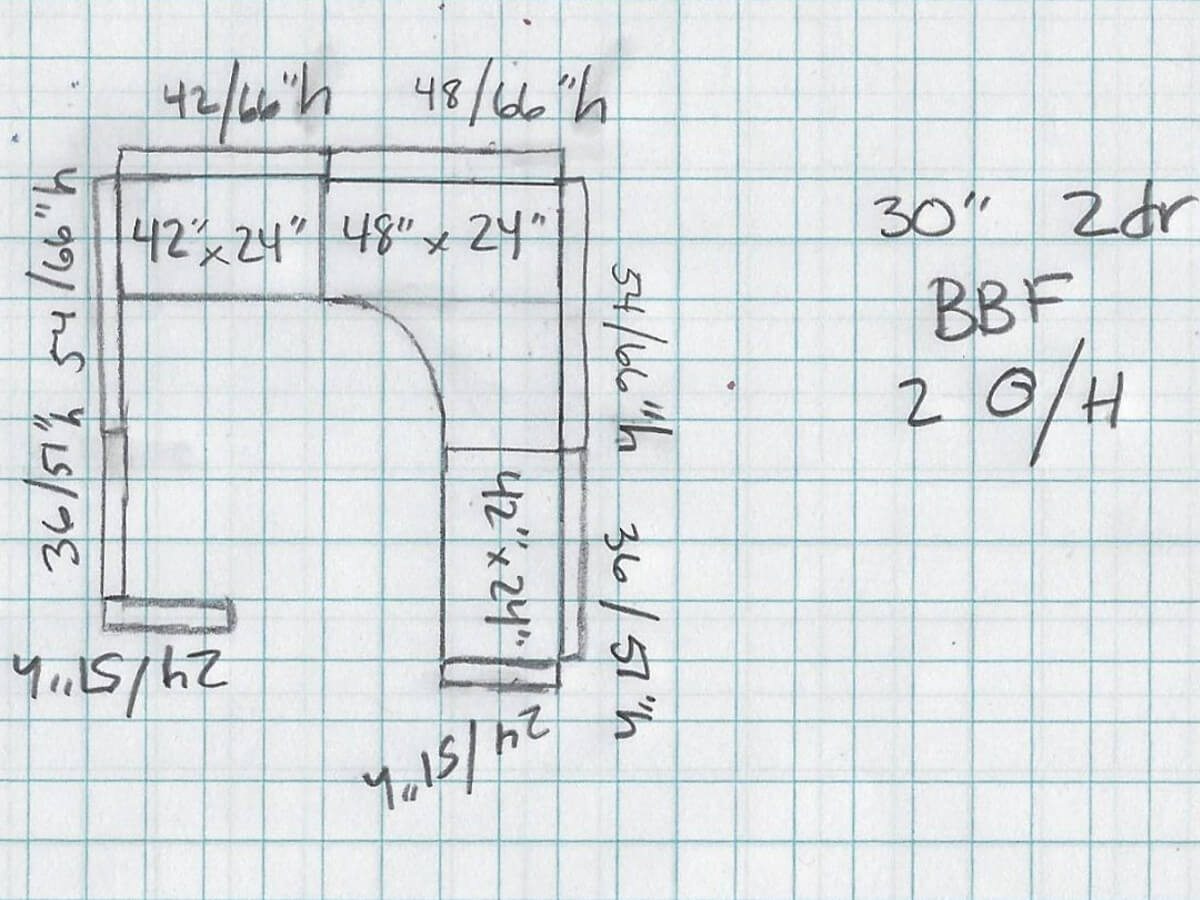 42/66"h
48/66"h
54/66"h
42"x24"
48"x24"
30" 2dr
BBF
2 O/H
54/66"h
36/51"h
42"x24"
36/51"h
24/51"h
24/51"h